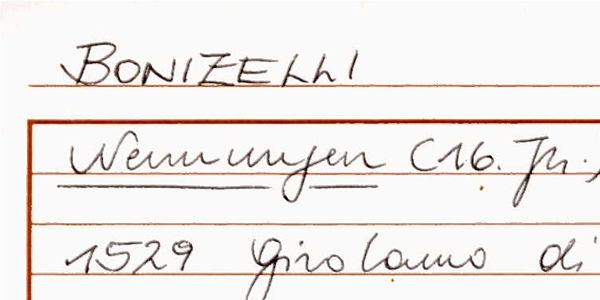 BONIZELLI
Nennungen (16. Jh.,
1529 Girolamo di